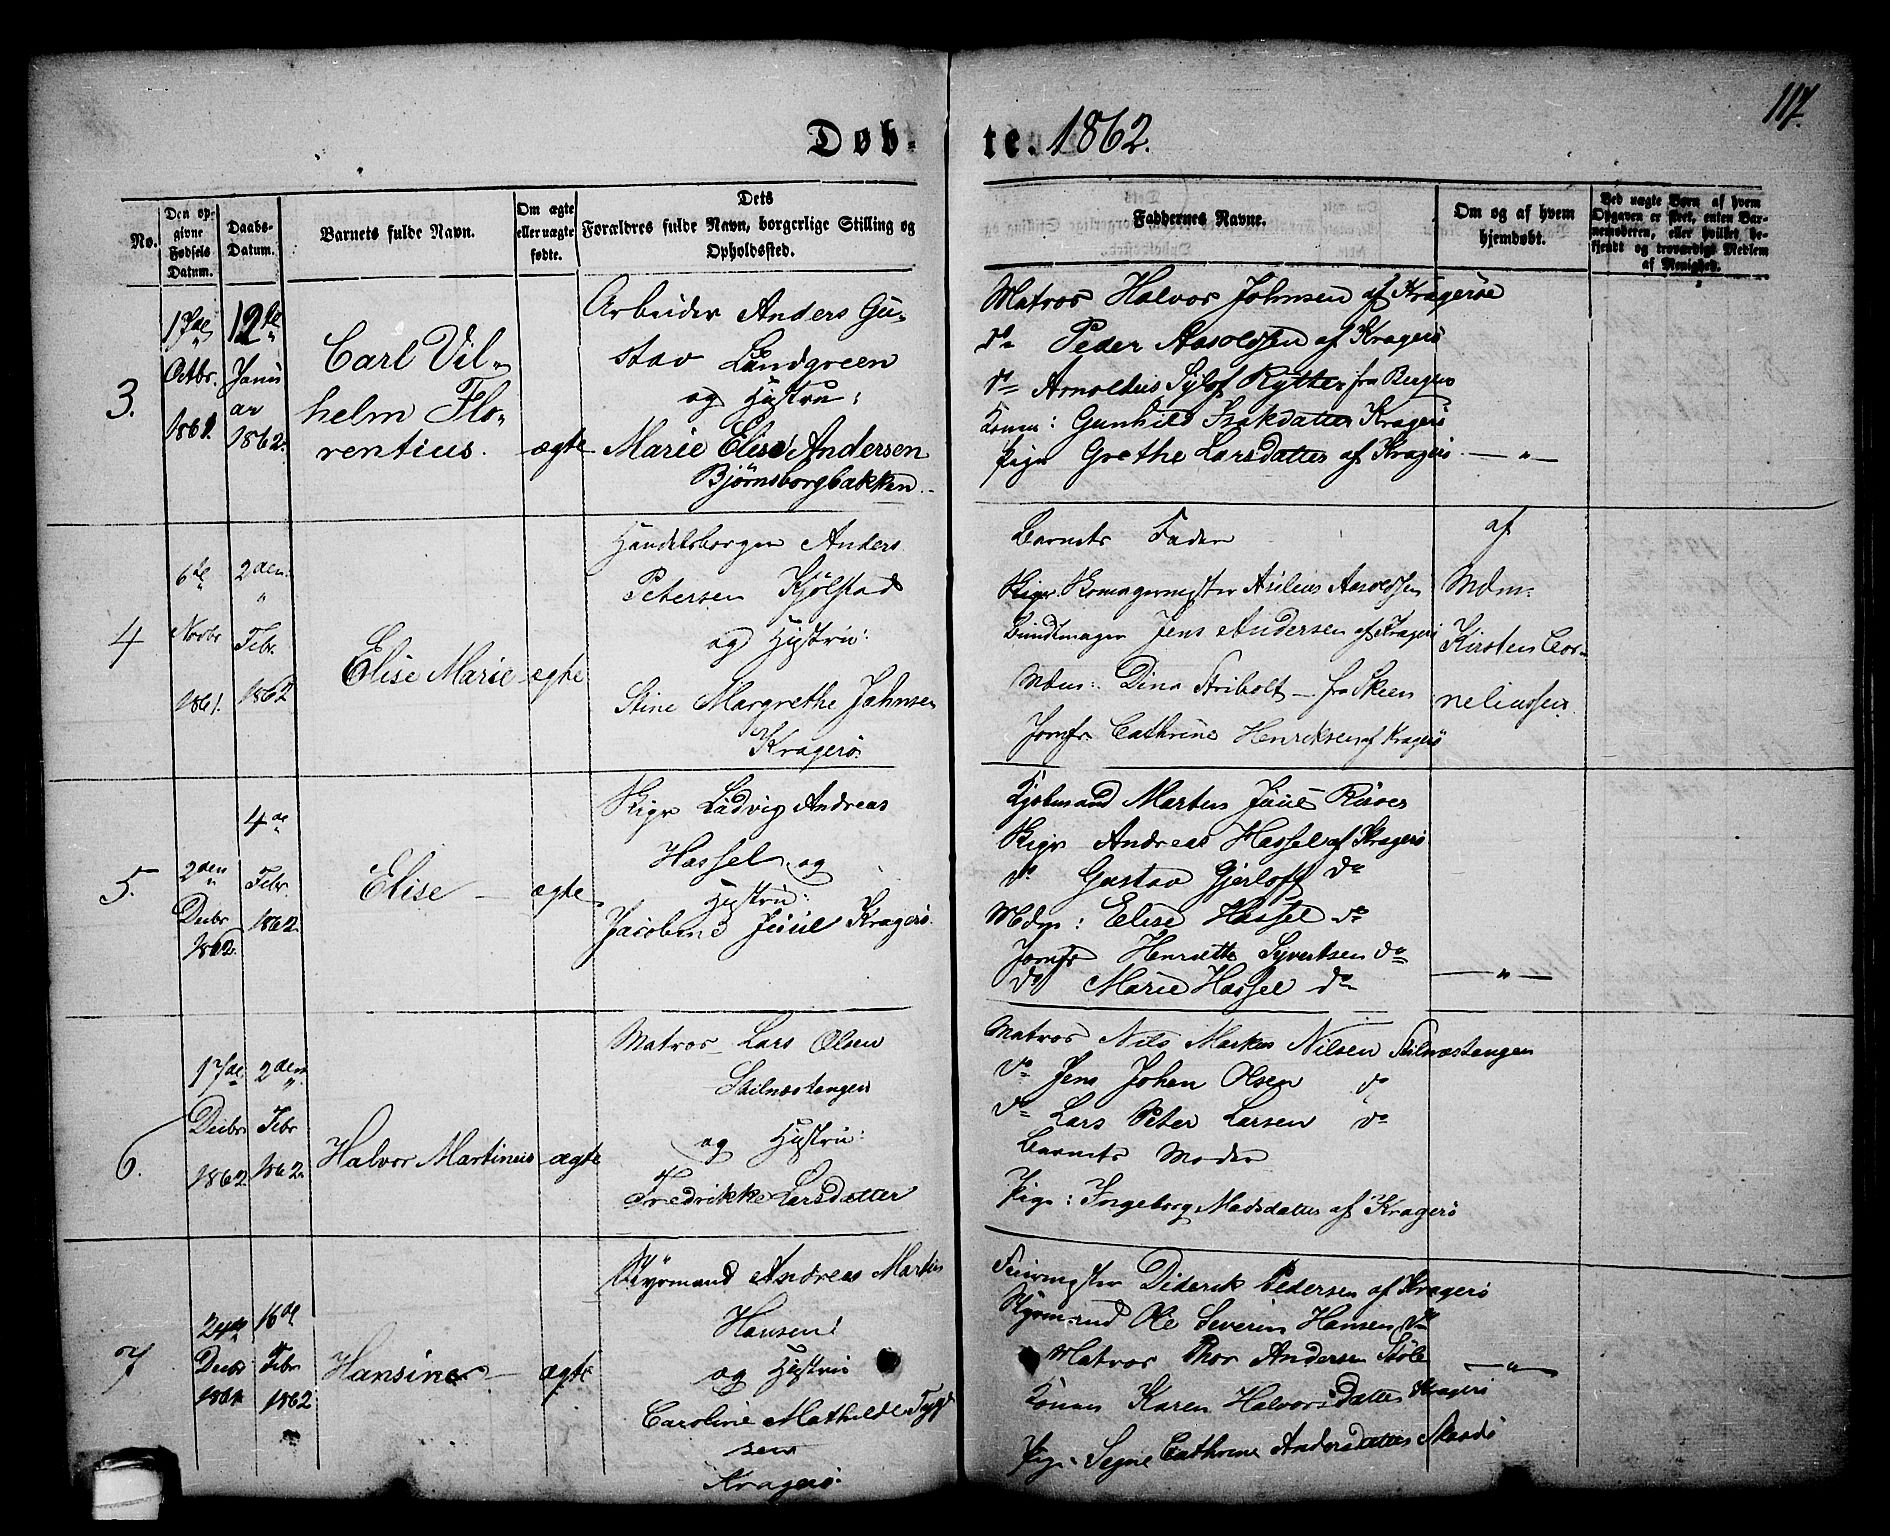 117.
Døbte. 1862.
No.
Den opgivne Fødsels Datum.
Daabs-Datum.
Barnets fulde Navn.
Om ægte eller uægte fødte.
Dets Forældres fulde Navn, borgerlige Stilling og Opholdssted.
Faddernes Navne.
Om og af hvem hjemdøbt.
Ved uægte Børn af hvem Opgaven er skeet, enten Barnemoderen, eller hvilket bekjendt og troværdigt Medlem af Menighed.
3.
17de Octbr. 1861.
12te Januar 1862.
Carl Vil-
helm Flo-
rentius.
ægte
Arbeider Anders Gu-
stav Lundgreen
og Hustru:
Marie Elise Andersen
Bjørnsborgbakken.
Matros Halvor Johnsen af Kragerøe
do Peder Aasoldsen af Kragerø
do Arnoldus Rytter fra Bergen
Konen: Gunhild Isakdatter Kragerø
Pige Grethe Larsdatter af Kragerø. — " —
4
6te Novbr 1861.
2den Febr. 1862
Elise Marie
ægte
Handelsborger Anders
Petersen Kjølstad
og Hustru:
Stine Margrethe Jahnsen
Kragerø.
Barnets Fader
Aasoldsen
Bundtmager Jens Andersen af Kragerø
Mdm: Dina Stibolt — fra Skeen
Jomfr Cathrine Henriksen af Kragerø
af
Mdm.
Kirsten Cor-
neliussen.
5.
2den Decbr 1862.
4de Febr 1862.
Elise —
ægte
Skipr Ludvig Andreas
Hassel og
Hustru:
Jacobine Juul Kragerø.
Kjøbmand Martin Juul
Skipr Andreas Hassel af Kragerø
do Gustav Gjerloff do
Mdm: Elise Hassel do
Jomfr Henriette Syvertsen do
do Marie Hassel do — " —
6.
17de Decbr 1862
2den Febr 1862.
Halvor Martinius
ægte
Matros Lars Olsen
Stilnestangen
og Hustru:
Fredrikke Larsdatter
Matros Nils Markus Nilsen Stilnæstangen
do Jens Johan Olsen do
do Lars Peter Larsen do
Barnets Moder
Pige: Ingeborg Madsdatter af Kragerø
7
24de Decbr 1861
16de Febr 1862
Hansine —
ægte
Styrmand Andreas Martin
Hansen
og Hustru
Caroline Mathilde
sen
Kragerø.
Diderik Pedersen af Kragerø
Styrmand Ole Severin Hansen do
Matros Thor Andersen Støle — " —
Konen Karen Halvorsdatter Kragerø
Pige Signe Cathrine Andersdatter